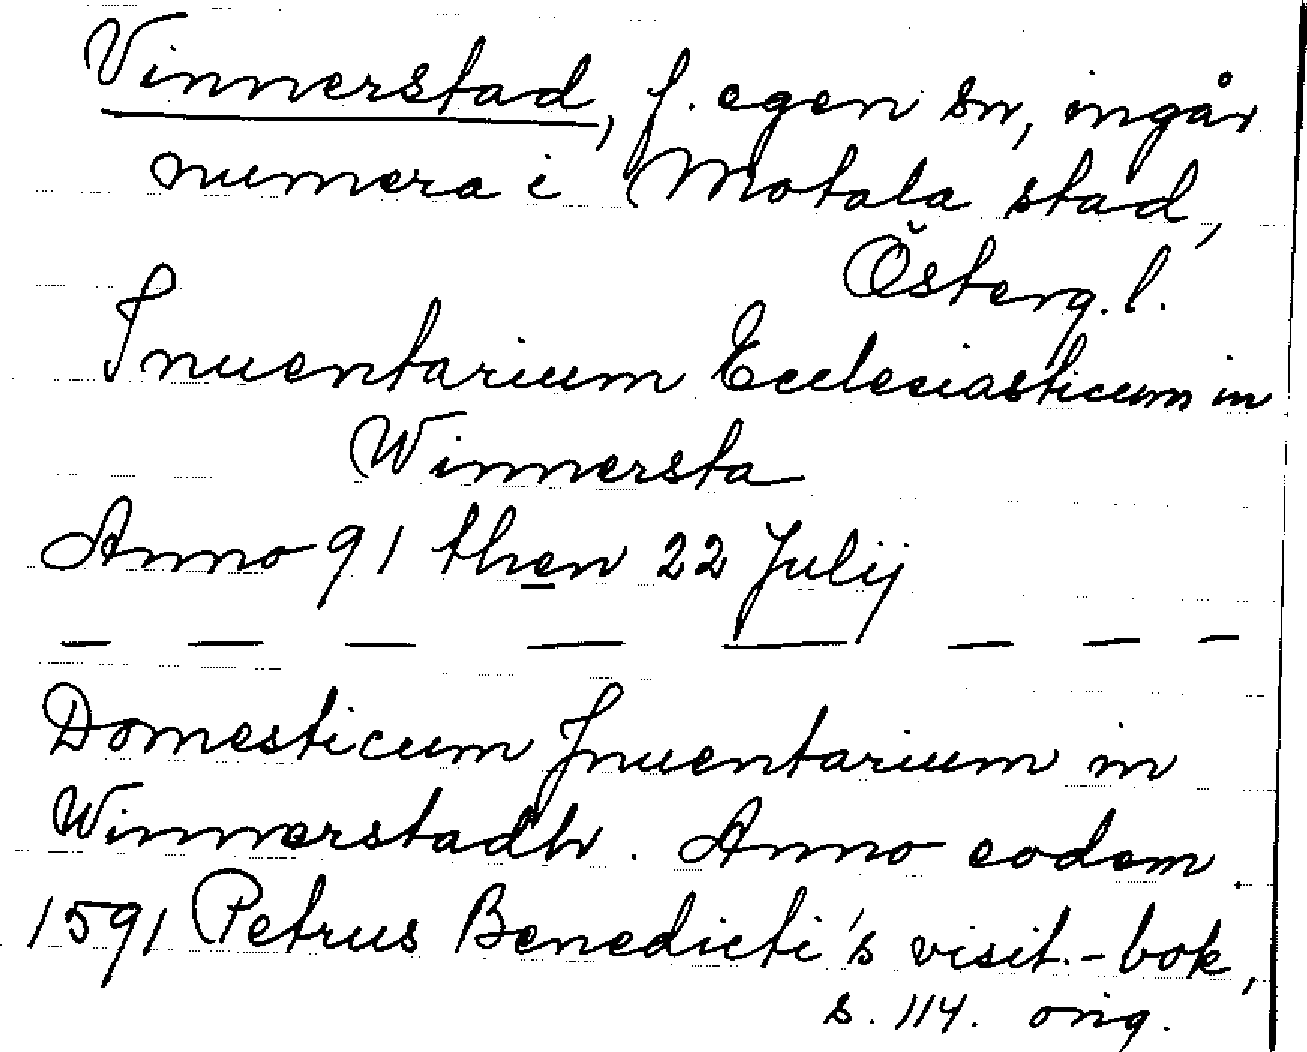 Vinnerstad, f. egen sn, ingår
numera i Motala stad,
Österg. l.
Inuentarium Ecclesiasticum in
Winnersta
Anno 91 then 22 Julij
— — — — — — — —
Domesticum Inuentarium in
Winnerstadh. Anno eodem
1591 Petrus Benedicti's visit.-bok,
s. 114. orig.